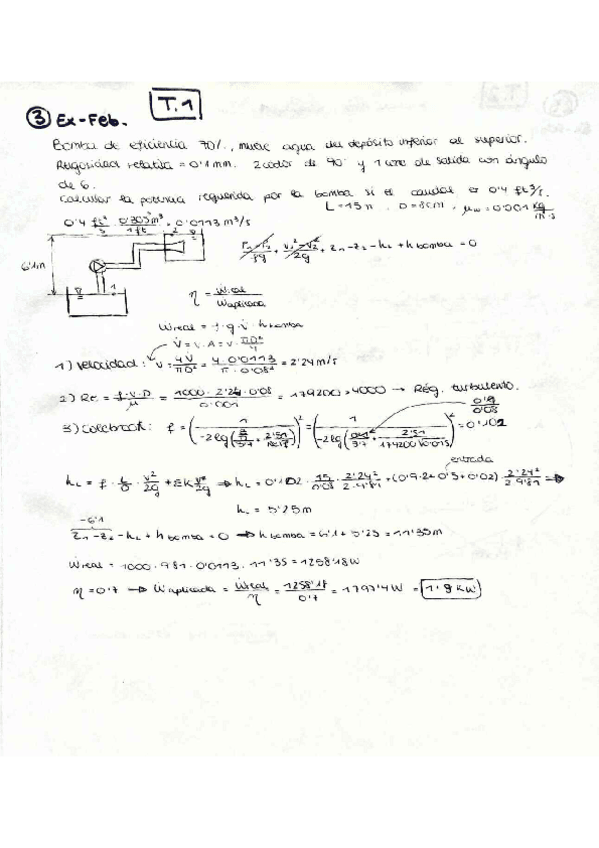 T.1
③ Ex-Feb.
Bomba de eficiencia 70%, mueve agua del depósito inferior al superior.
Rugosidad relativa = 0'1mm. 2 codos de 90° y 1 cono de salida con ángulo
de 6.
Calcular la potencia requerida por la bomba si el caudal es 0'4 ft³/s.
L = 15 m , D = 8cm , μw = 0'001 kg/m·s
0'4 ft³/s · 0'305³ m³/1 ft³ = 0'0113 m³/s
6'1m
2
1
P1-P2/ρg + V1²-V2²/2g + z1 - z2 - hL + h bomba = 0
η = Wreal/Waplicada
Wreal = ρ·g·V̇·h bomba
V̇ = v·A = v·πD²/4
1) Velocidad: v = 4V̇/πD² = 4·0'0113/π·0'08² = 2'24 m/s
2) Re = ρ·v·D/μ = 1000·2'24·0'08/0'001 = 179200 > 4000 → Rég. turbulento.
3) Colebrook: f = = 0'102
entrada
hL = f·L/D·v²/2g + ΣK v²/2g → hL = 0'102·15/0'08·2'24²/2·9'81 + (0'9·2+0'5+0'02)·2'24²/2·9'81 ⇒
hL = 5'25m
-6'1
z1 - z2 - hL + h bomba = 0 → h bomba = 6'1 + 5'25 = 11'35m
Wreal = 1000·9'81·0'0113·11'35 = 1258'18W
η = 0'7 → Waplicada = Wreal/η = 1258'18/0'7 = 1797'4W = 1'8 KW